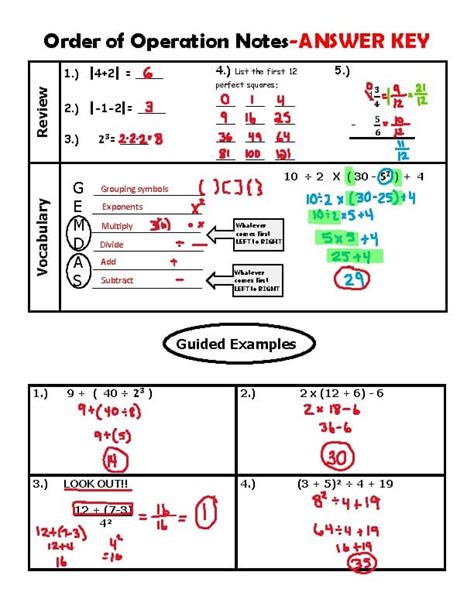 Order of Operation Notes-ANSWER KEY
Review
1.) |4+2| = 6
2.) |-1-2| = 3
3.) 2³= 2·2·2=8
4.) List the first 12
perfect squares;
0 1 4
9 16 25
36 49 64
81 100 121
5.)
3/4 = 1 9/12 = 21/12
- 5/6 - = 10/12
11/12
Vocabulary
G Grouping symbols ( ) [ ] { }
E Exponents x²
M Multiply 3(2) • ×
D Divide ÷ −
A Add +
S Subtract -
Whatever
comes first
LEFT to RIGHT
Whatever
comes first
LEFT to RIGHT
10 ÷ 2 X (30 - 5²) + 4
10÷2 x (30-25)+4
10÷2 x 5+4
5 x 5 +4
25+4
29
Guided Examples
1.) 9 + ( 40 ÷ 2³ )
9+(40÷8)
9+(5)
14
2.) 2 x (12 + 6) - 6
2 x 18-6
36-6
30
3.) LOOK OUT!!
12 + (7-3)
4²
= 16/16 = 1
12+(7-3)
12+4
16
4²
16
4.) (3 + 5)² ÷ 4 + 19
8² ÷4 +19
64÷4 +19
16+19
35